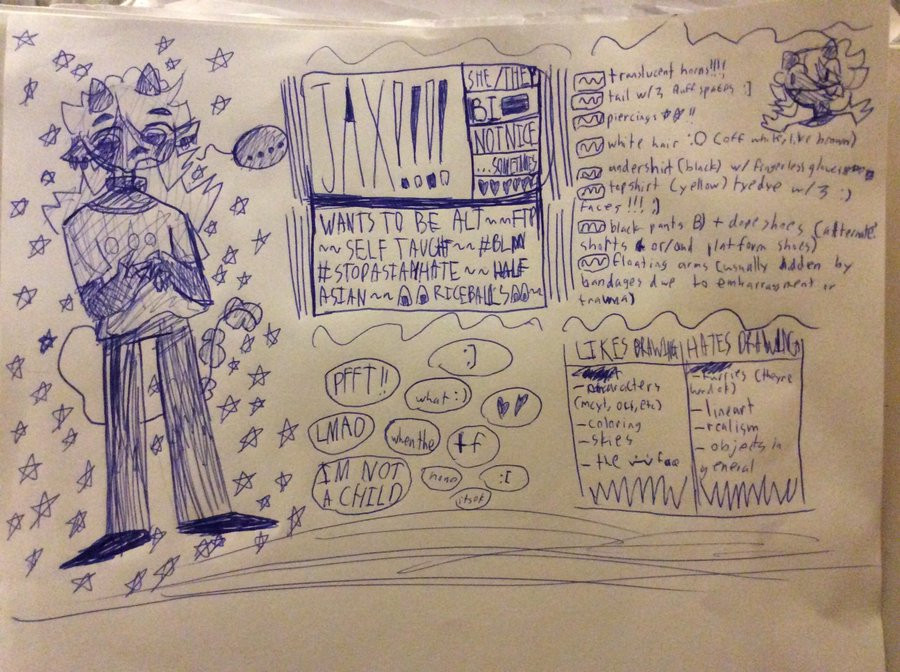 JAX!!!!
SHE/THEY
BI
NOT NICE
...SOMETIMES
WANTS TO BE ALT ~~ FTP
~~ SELF TAUGHT ~~ #BLM
#STOPASIANHATE ~~ HALF
ASIAN ~~ RICEBALLS ~
translucent horns!!!
tail w/3 fluff spaces :]
piercings !!
white hair :O (off white, like brown)
undershirt (black) w/ fingerless gloves
topshirt (yellow) tyedye w/ 3 :)
faces!!! ;)
black pants B) + dope shoes (alternate:
shorts + or/and platform shoes)
floating arms (usually hidden by
bandages due to embarrassment or
trauma)
:]
PFFT!!
what :)
LMAO
when the
tf
IM NOT
A CHILD
:I
LIKES DRAWING
- characters
(mcyt, ocs, etc)
- coloring
- skies
- the face
HATES DRAWING
- furries (theyre
hard ot)
- lineart
- realism
- objects in
general